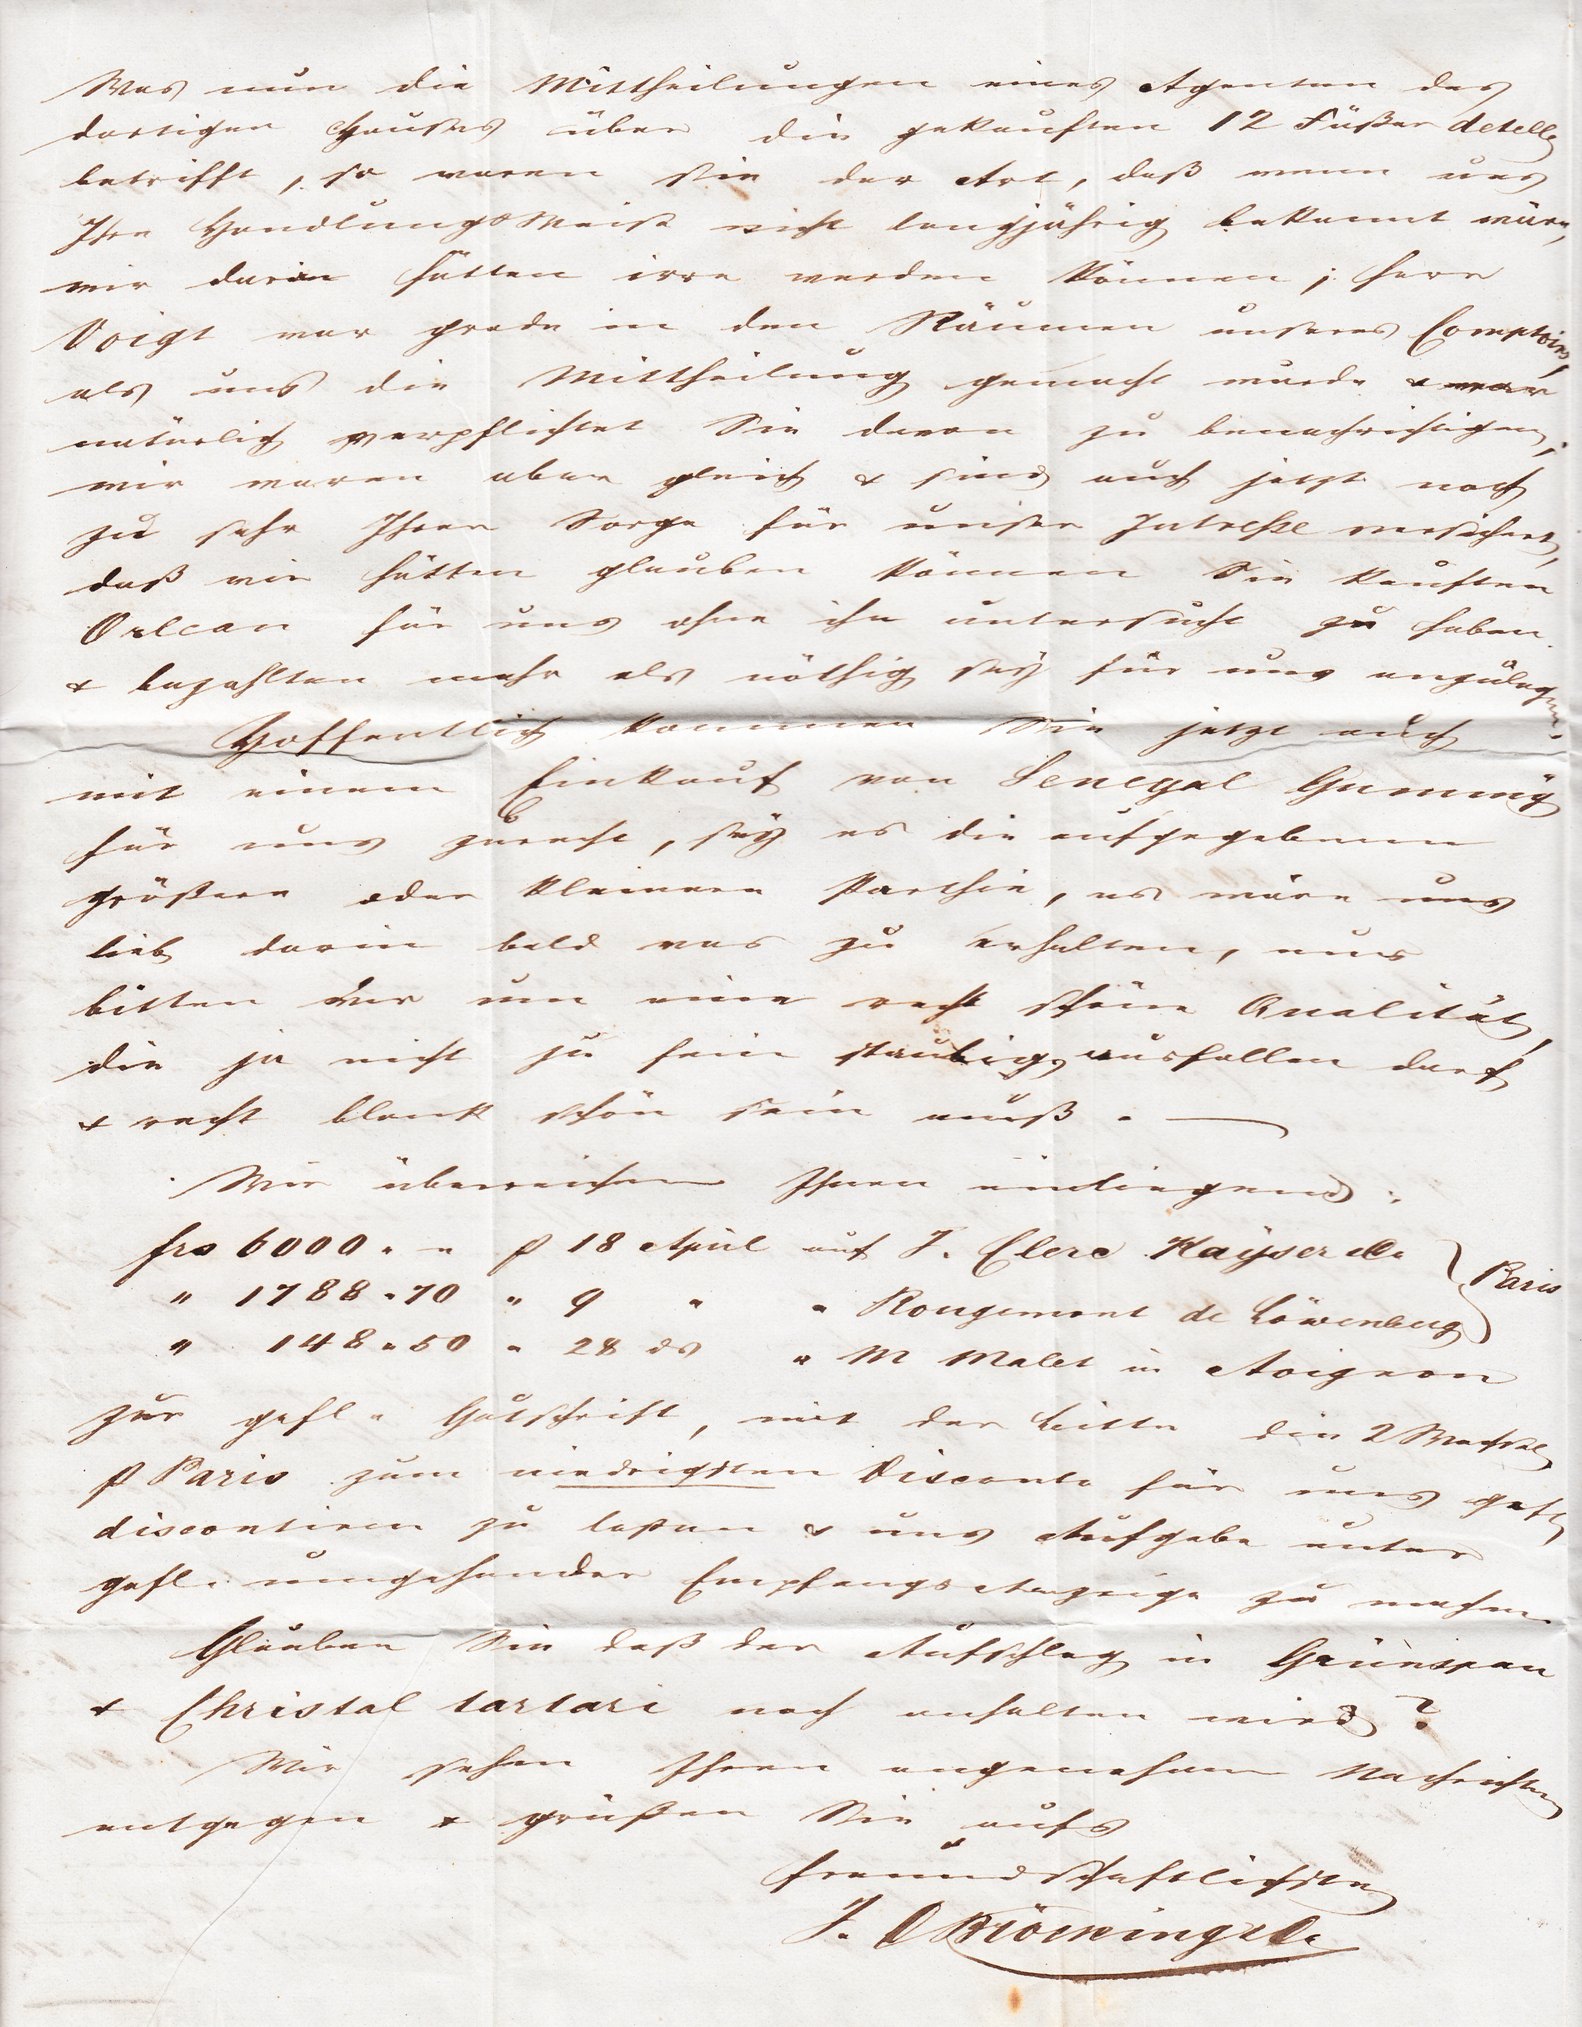 Was nun die Mittheilungen eines Agenten des
dortigen Hauses über die gekauften 12 Fäßer
betrifft, so waren sie der Art, daß wenn uns
Ihre Handlungs Weise nicht langjährig bekannt wäre,
wir darin hätten irre werden können; Herr
Voigt war grade in den Räumen unseres Comptoirs,
als uns die Mittheilung gemacht wurde & war
natürlich verpflichtet Sie davon zu benachrichtigen;
wir waren aber gleich & sind auch jetzt noch
zu sehr Ihrer Sorge für unser Intreße versichert,
daß wir hätten glauben können Sie kauften
Orlean für uns ohne ihn untersucht zu haben
& bezahlten mehr als nöthig sey für uns anzulegen.
Hoffentlich kommen Sie jetzt auch
mit einem Einkauf von Senegal Gummÿ
für uns zurecht, seÿ es die aufgegebene
größere oder kleinere Parthie, es wäre uns
lieb darin bald was zu erhalten, nur
bitten wir um eine recht schöne Qualität,
die ja nicht zu fein staubig ausfallen darf
& recht blank schön sein muß. —
Wir überreichen Ihnen einliegend:
frs 6000 „ „ p 18 April auf J. Clerc Kaÿser & Co
„ 1788 „ 70 „ 9 „ „ Rougemont de Löwenberg } Paris
„ 148 „ 50 „ 28 ds „ M Malet in Avignon
zur gefl. Gutschrift, mit der Bitte die 2 Wechsel
p Paris zum niedrigsten Disconto für uns gefl
discontiren zu laßen & uns Aufgabe unter
gefl. umgehender Empfangs Anzeige zu machen.
Glauben Sie daß der Aufschlag in Grünspan
& Christal tartari noch anhalten wird?
Wir sehen Ihren angenehmen Nachrichten
entgegen & grüßen Sie aufs
freundschaftlichste